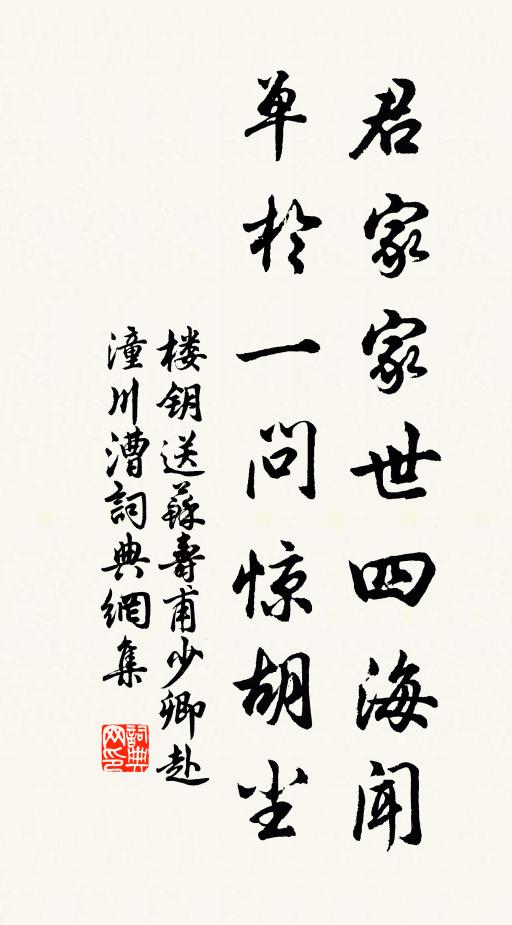 君家家世四海闻
单於一问惊胡尘
楼钥送蘇壽甫少卿赴
潼川漕詞典網集
詞典网印